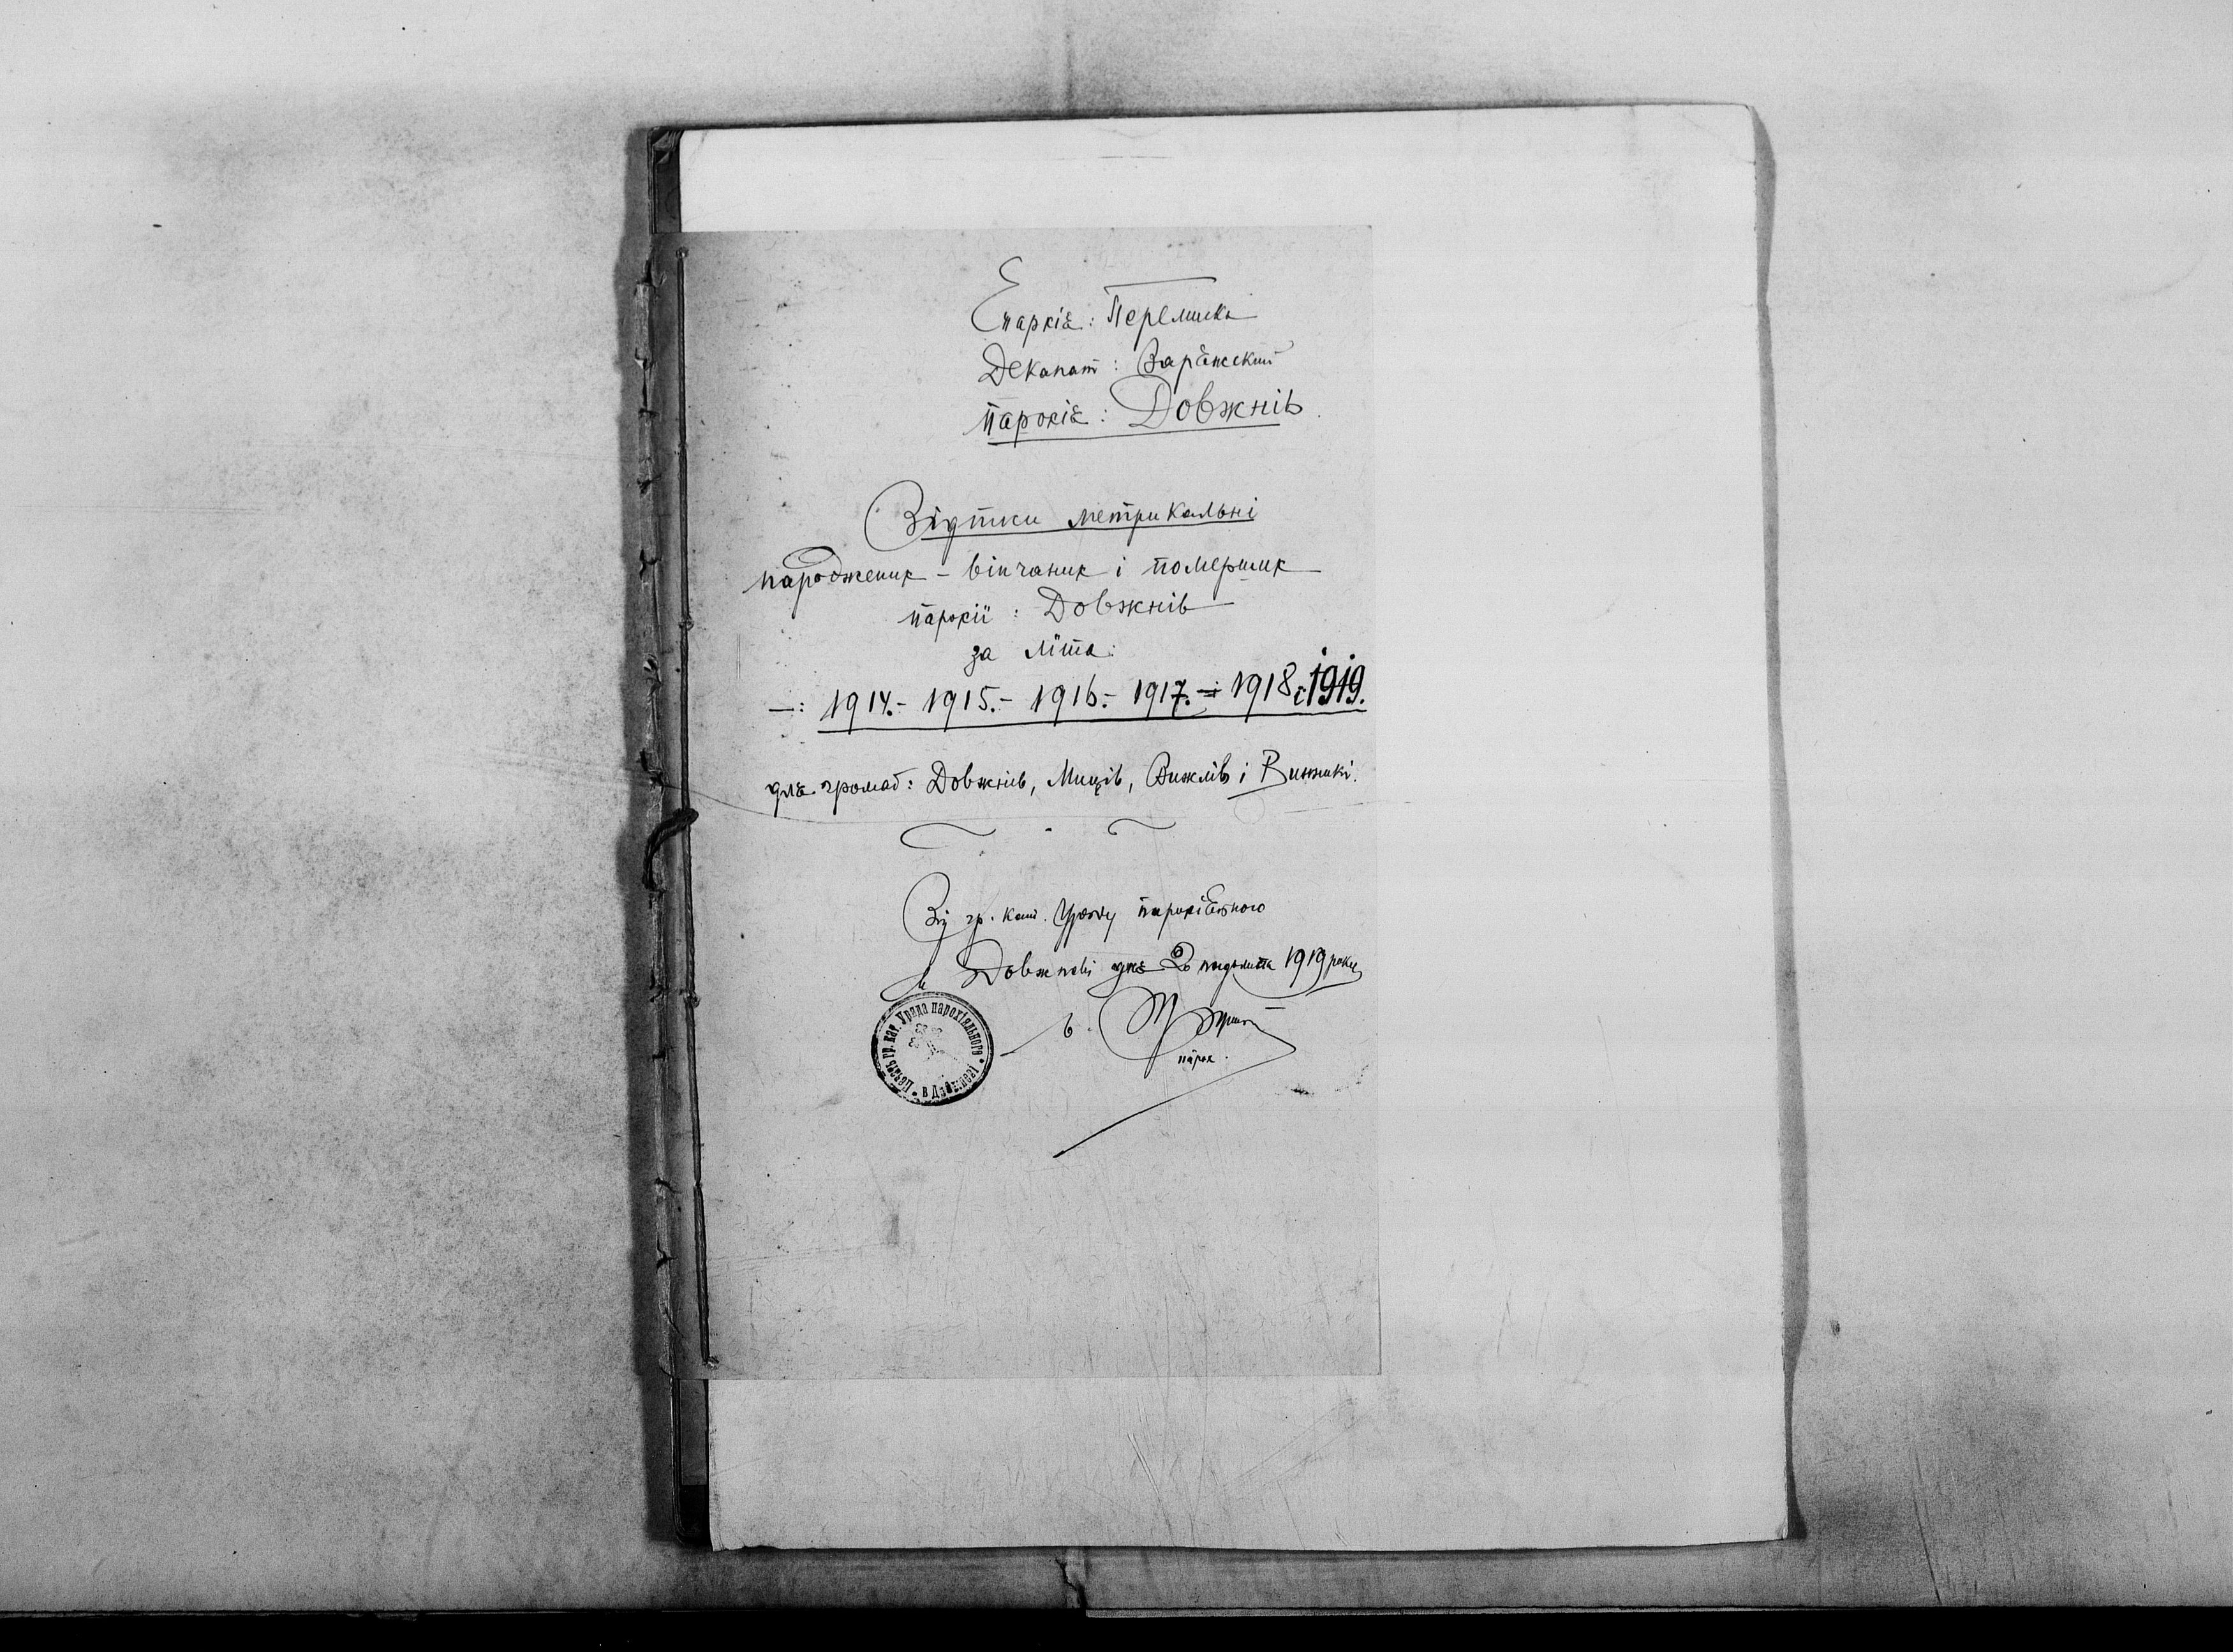 Епархія: Перемишль
Деканат: Варяжский
парохія: Довжнів.
Відписи метрикальні
народжених - вінчаних і померших
парохії: Довжнів
за літа:
—: 1914.- 1915.- 1916.- 1917.- 1918 і 1919.
для громад: Довжнів, Миців, Вижлів і Вижлки.
Від гр. кат. Уряду парохіяльного
в Довжневі дня 2 падолиста 1919 року
парох.
Печать гр. кат. Уряда парохіяльного • в Довжневі •